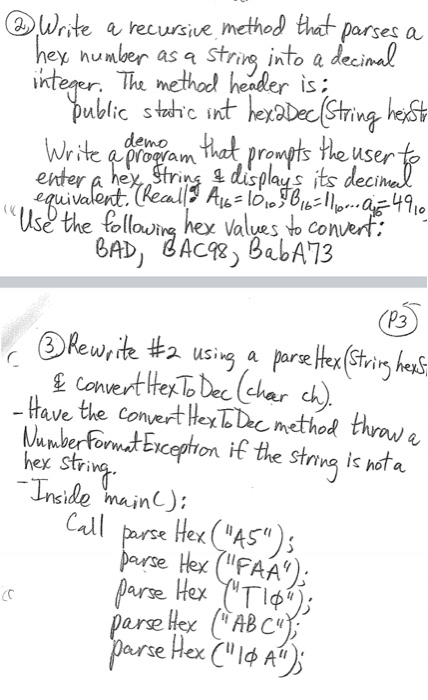 ② Write a recursive method that parses a
hex number as a string into a decimal
integer. The method header is:
public static int hex2Dec(String hexStr
Write a demo program that prompts the user to
enter a hex string & displays its decimal
equivalent. (Recall: A₁₆=10₁₀, B₁₆=11₁₀...a₁₆=49₁₀
Use the following hex values to convert:
BAD, BAC98, BabA73
(P3)
③ Rewrite #2 using a parseHex(String hexS
& convertHexToDec(char ch).
- Have the convertHexToDec method throw a
NumberFormatException if the string is not a
hex string.
- Inside main():
Call parseHex("A5");
parseHex("FAA");
parseHex("T1φ");
parseHex("ABC");
parseHex("1φA");